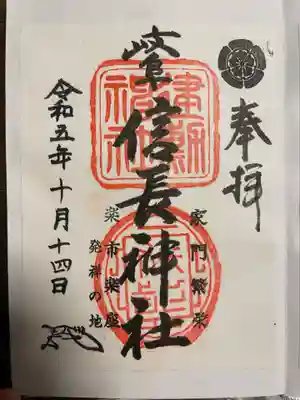 奉拝
岐阜信長神社
家門繁栄
楽市楽座
発祥の地
令和五年十月十四日